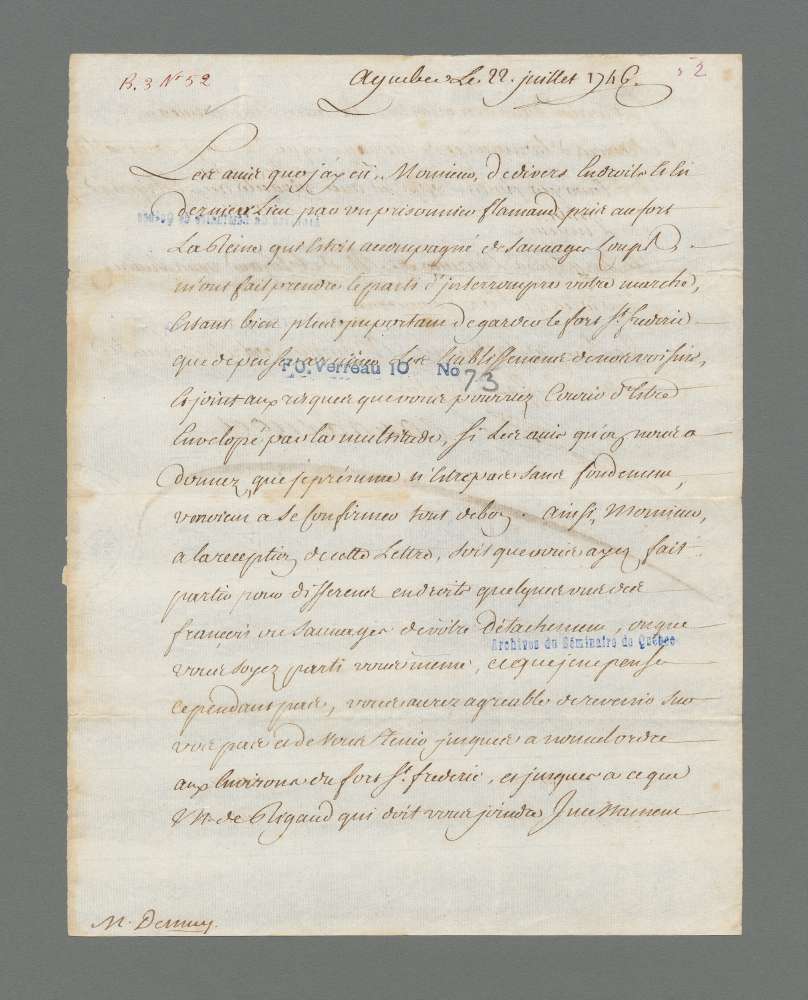 B. 3 N° 52
52
A quebec Le 22. juillet 1746.
Les avis que j'ay eü, Monsieur, de divers Endroits et En
dernier Lieu par un prisonnier flamand pris au fort
Archives du Séminaire de Québec
La Reine qui Estoit accompagné de Sauvages Loups,
m'ont fait prendre le parti d'jnterrompre vôtre marche,
Estant bien plus jmportant de garder le fort St. frederic
que de penser a ruiner Les Etablissemens de nos voisins,
F.O. Verreau 10 No 73
Et joint aux risques que vous pourriez Courir d'Estre
Envelopé par la multitude, si Les avis qu'on nous a
donnez, que je présume n'Estre pas sans fondement,
venoient a se Confirmer tout de bon. ainsi, Monsieur,
a la reception de cette Lettre, soit que vous ayez fait
partir pour differens endroits quelques uns des
françois ou Sauvages de vôtre détachement, ou que
Archives du Séminaire de Québec
vous soyez parti vous meme, ce que je ne pense
cependant pas, vous aurez agreable de revenir sur
vos pas et de vous tenir jusques a nouvel ordre
aux Environs du fort St. frederic, et jusques a ce que
Mr. de Rigaud qui doit vous joindre Jncessamment
M. Demuy.